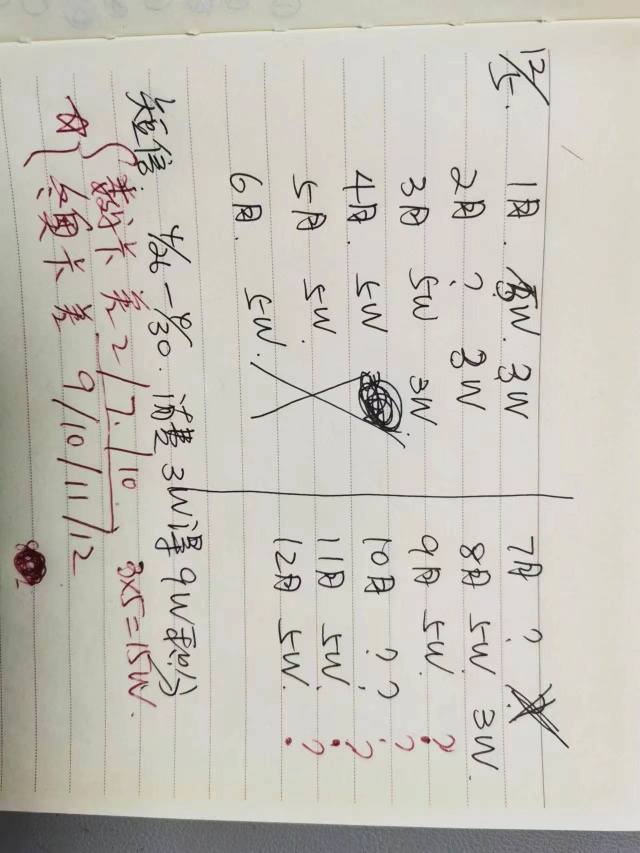 12/5.
1月. 5W. 3W
2月 ? 3W
3月 5W 3W
4月. 5W
5月 5W.
6月. 5W.
7月 ?
8月 5W. 3W.
9月 5W. ?
10月 ?? ?
11月 5W. ?
12月 5W. ?
短信: 4/26-6/30. 消费3W得9W积分
卡 差2/7/10 3x5=15W.
卡 差 9/10/11/12